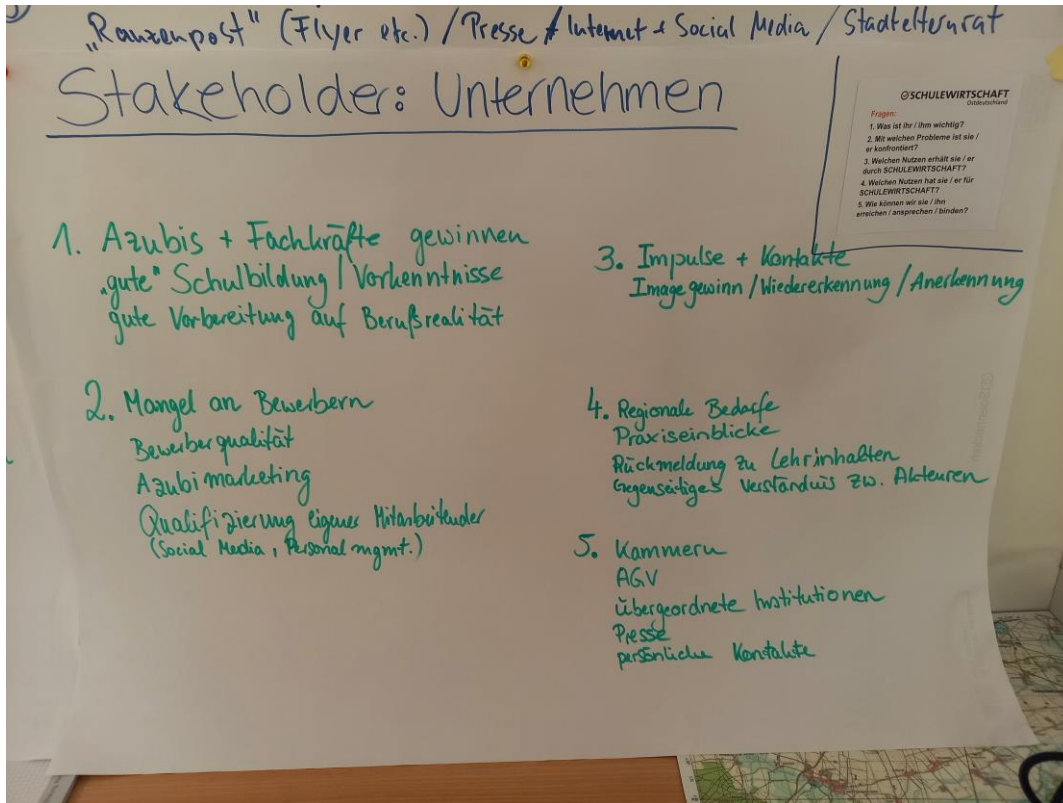 „Ranzenpost" (Flyer etc.) / Presse / Internet + Social Media / Stadtelternrat
Stakeholder: Unternehmen
SCHULEWIRTSCHAFT
Ostdeutschland
Fragen:
1. Was ist ihr / ihm wichtig?
2. Mit welchen Probleme ist sie /
er konfrontiert?
3. Welchen Nutzen erhält sie / er
durch SCHULEWIRTSCHAFT?
4. Welchen Nutzen hat sie / er für
SCHULEWIRTSCHAFT?
5. Wie können wir sie / ihn
erreichen / ansprechen / binden?
1. Azubis + Fachkräfte gewinnen
„gute" Schulbildung / Vorkenntnisse
gute Vorbereitung auf Berufsrealität
2. Mangel an Bewerbern
Bewerberqualität
Azubimarketing
Qualifizierung eigener Mitarbeitender
(Social Media, Personalmgmt.)
3. Impulse + Kontakte
Imagegewinn / Wiedererkennung / Anerkennung
4. Regionale Bedarfe
Praxiseinblicke
Rückmeldung zu Lehrinhalten
Gegenseitiges Verständnis zw. Akteuren
5. Kammern
AGV
übergeordnete Institutionen
Presse
persönliche Kontakte